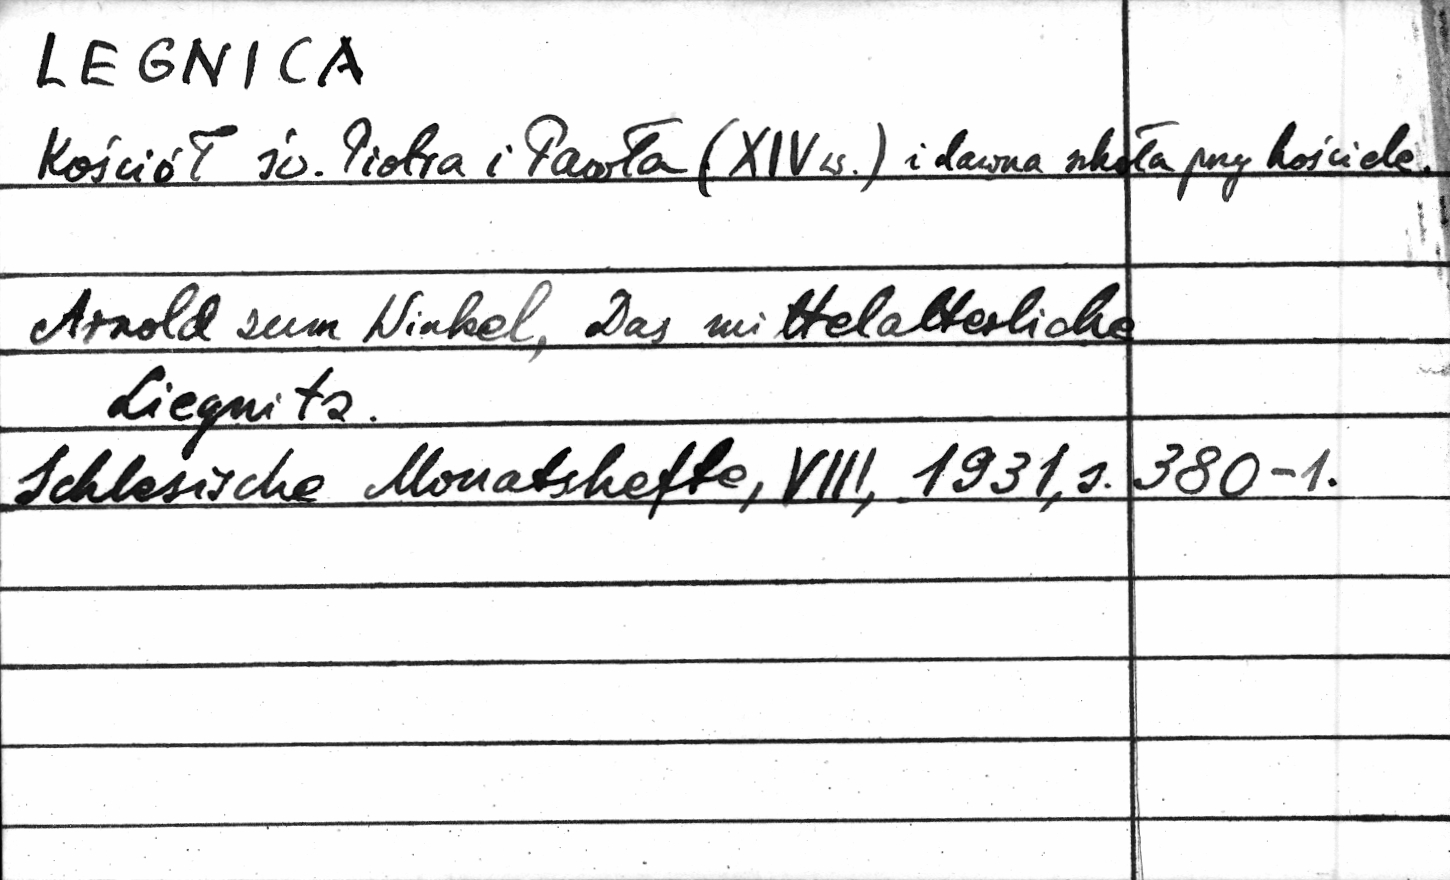 LEGNICA
Kościół św. Piotra i Pawła (XIV w.) i dawna szkoła przy kościele.
Arnold zum Winkel, Das mittelalterliche
Liegnitz.
Schlesische Monatshefte, VIII, 1931, s. 380-1.